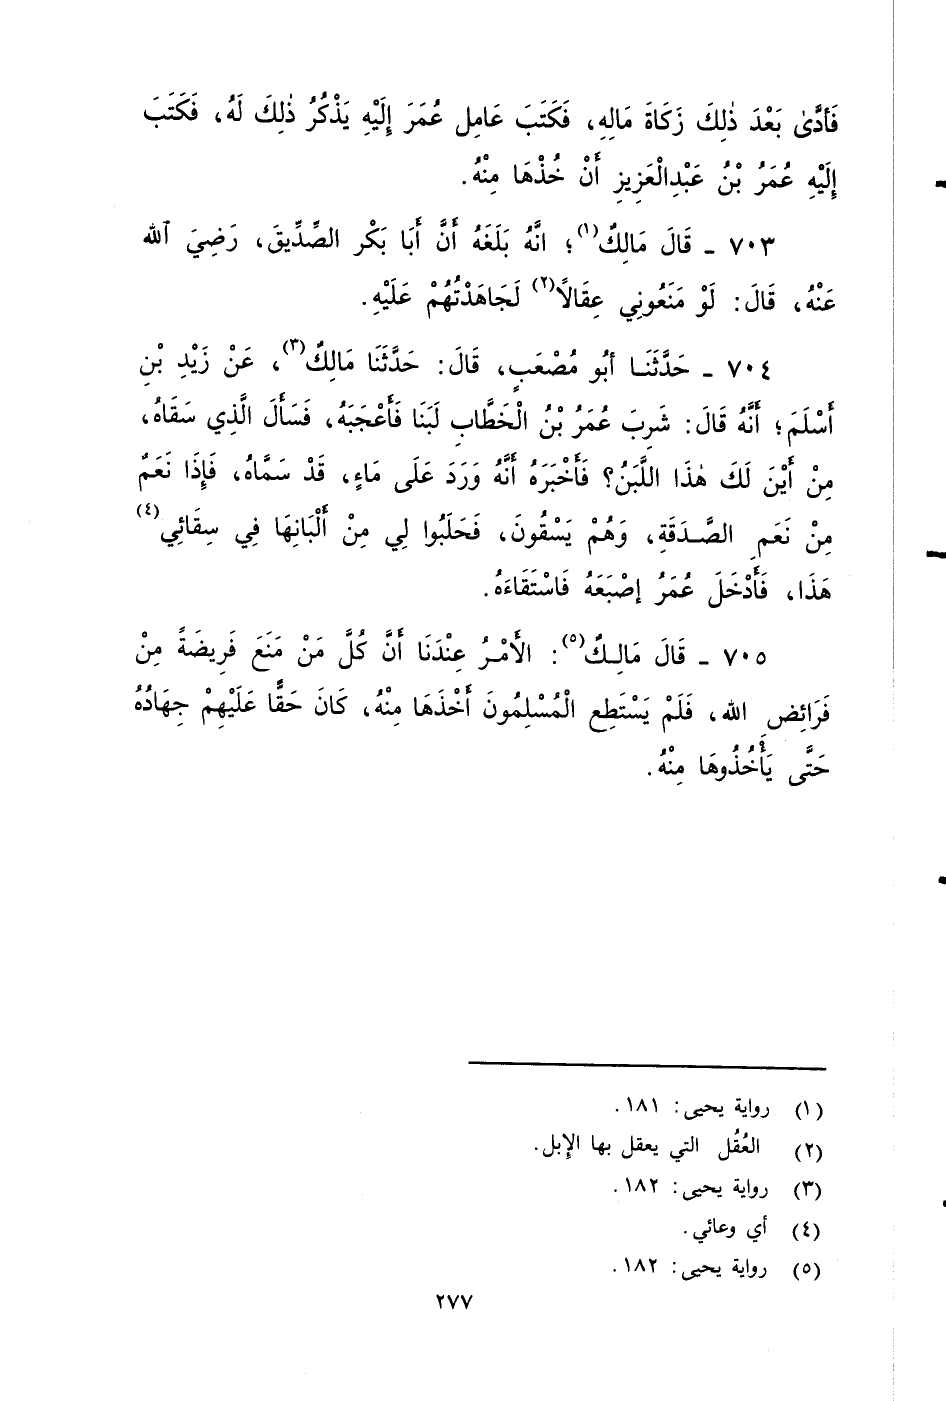 فَأَدَّىٰ بَعْدَ ذٰلِكَ زَكَاةَ مَالِهِ، فَكَتَبَ عَامِل عُمَرَ إِلَيْهِ يَذْكُرُ ذٰلِكَ لَهُ، فَكَتَبَ
إِلَيْهِ عُمَرُ بْنُ عَبْدِالْعَزِيزِ أَنْ خُذْهَا مِنْهُ.
٧٠٣ ـ قَالَ مَالِكٌ(١)؛ انَّهُ بَلَغَهُ أَنَّ أَبَا بَكْر الصِّدِّيقَ، رَضِيَ ٱلله
عَنْهُ، قَالَ: لَوْ مَنَعُونِي عِقَالًا(٢) لَجَاهَدْتُهُمْ عَلَيْهِ.
٧٠٤ ـ حَدَّثَنَا أَبُو مُصْعَبٍ، قَالَ: حَدَّثَنَا مَالِكٌ(٣)، عَنْ زَيْدِ بْنِ
أَسْلَمَ؛ أَنَّهُ قَالَ: شَرِبَ عُمَرُ بْنُ الْخَطَّابِ لَبَنَا فَأَعْجَبَهُ، فَسَأَلَ الَّذِي سَقَاهُ،
مِنْ أَيْنَ لَكَ هٰذَا اللَّبَنُ؟ فَأَخْبَرَهُ أَنَّهُ وَرَدَ عَلَى مَاءٍ، قَدْ سَمَّاهُ، فَإِذَا نَعَمٌ
مِنْ نَعَمِ الصَّدَقَةِ، وَهُمْ يَسْقُونَ، فَحَلَبُوا لِي مِنْ أَلْبَانِهَا فِي سِقَائِي(٤)
هَذَا، فَأَدْخَلَ عُمَرُ إصْبَعَهُ فَاسْتَقَاءَهُ.
٧٠٥ ـ قَالَ مَالِكٌ(٥): الأَمْرُ عِنْدَنَا أَنَّ كُلَّ مَنْ مَنَعَ فَرِيضَةً مِنْ
فَرَائِضِ الله، فَلَمْ يَسْتَطِعِ الْمُسْلِمُونَ أَخْذَهَا مِنْهُ، كَانَ حَقًّا عَلَيْهِمْ جِهَادُهُ
حَتَّى يَأْخُذُوهَا مِنْهُ.
(١) رواية يحيى: ١٨١.
(٢) العُقُل التي يعقل بها الإبل.
(٣) رواية يحيى: ١٨٢.
(٤) أي وعائي.
(٥) رواية يحيى: ١٨٢.
٢٧٧